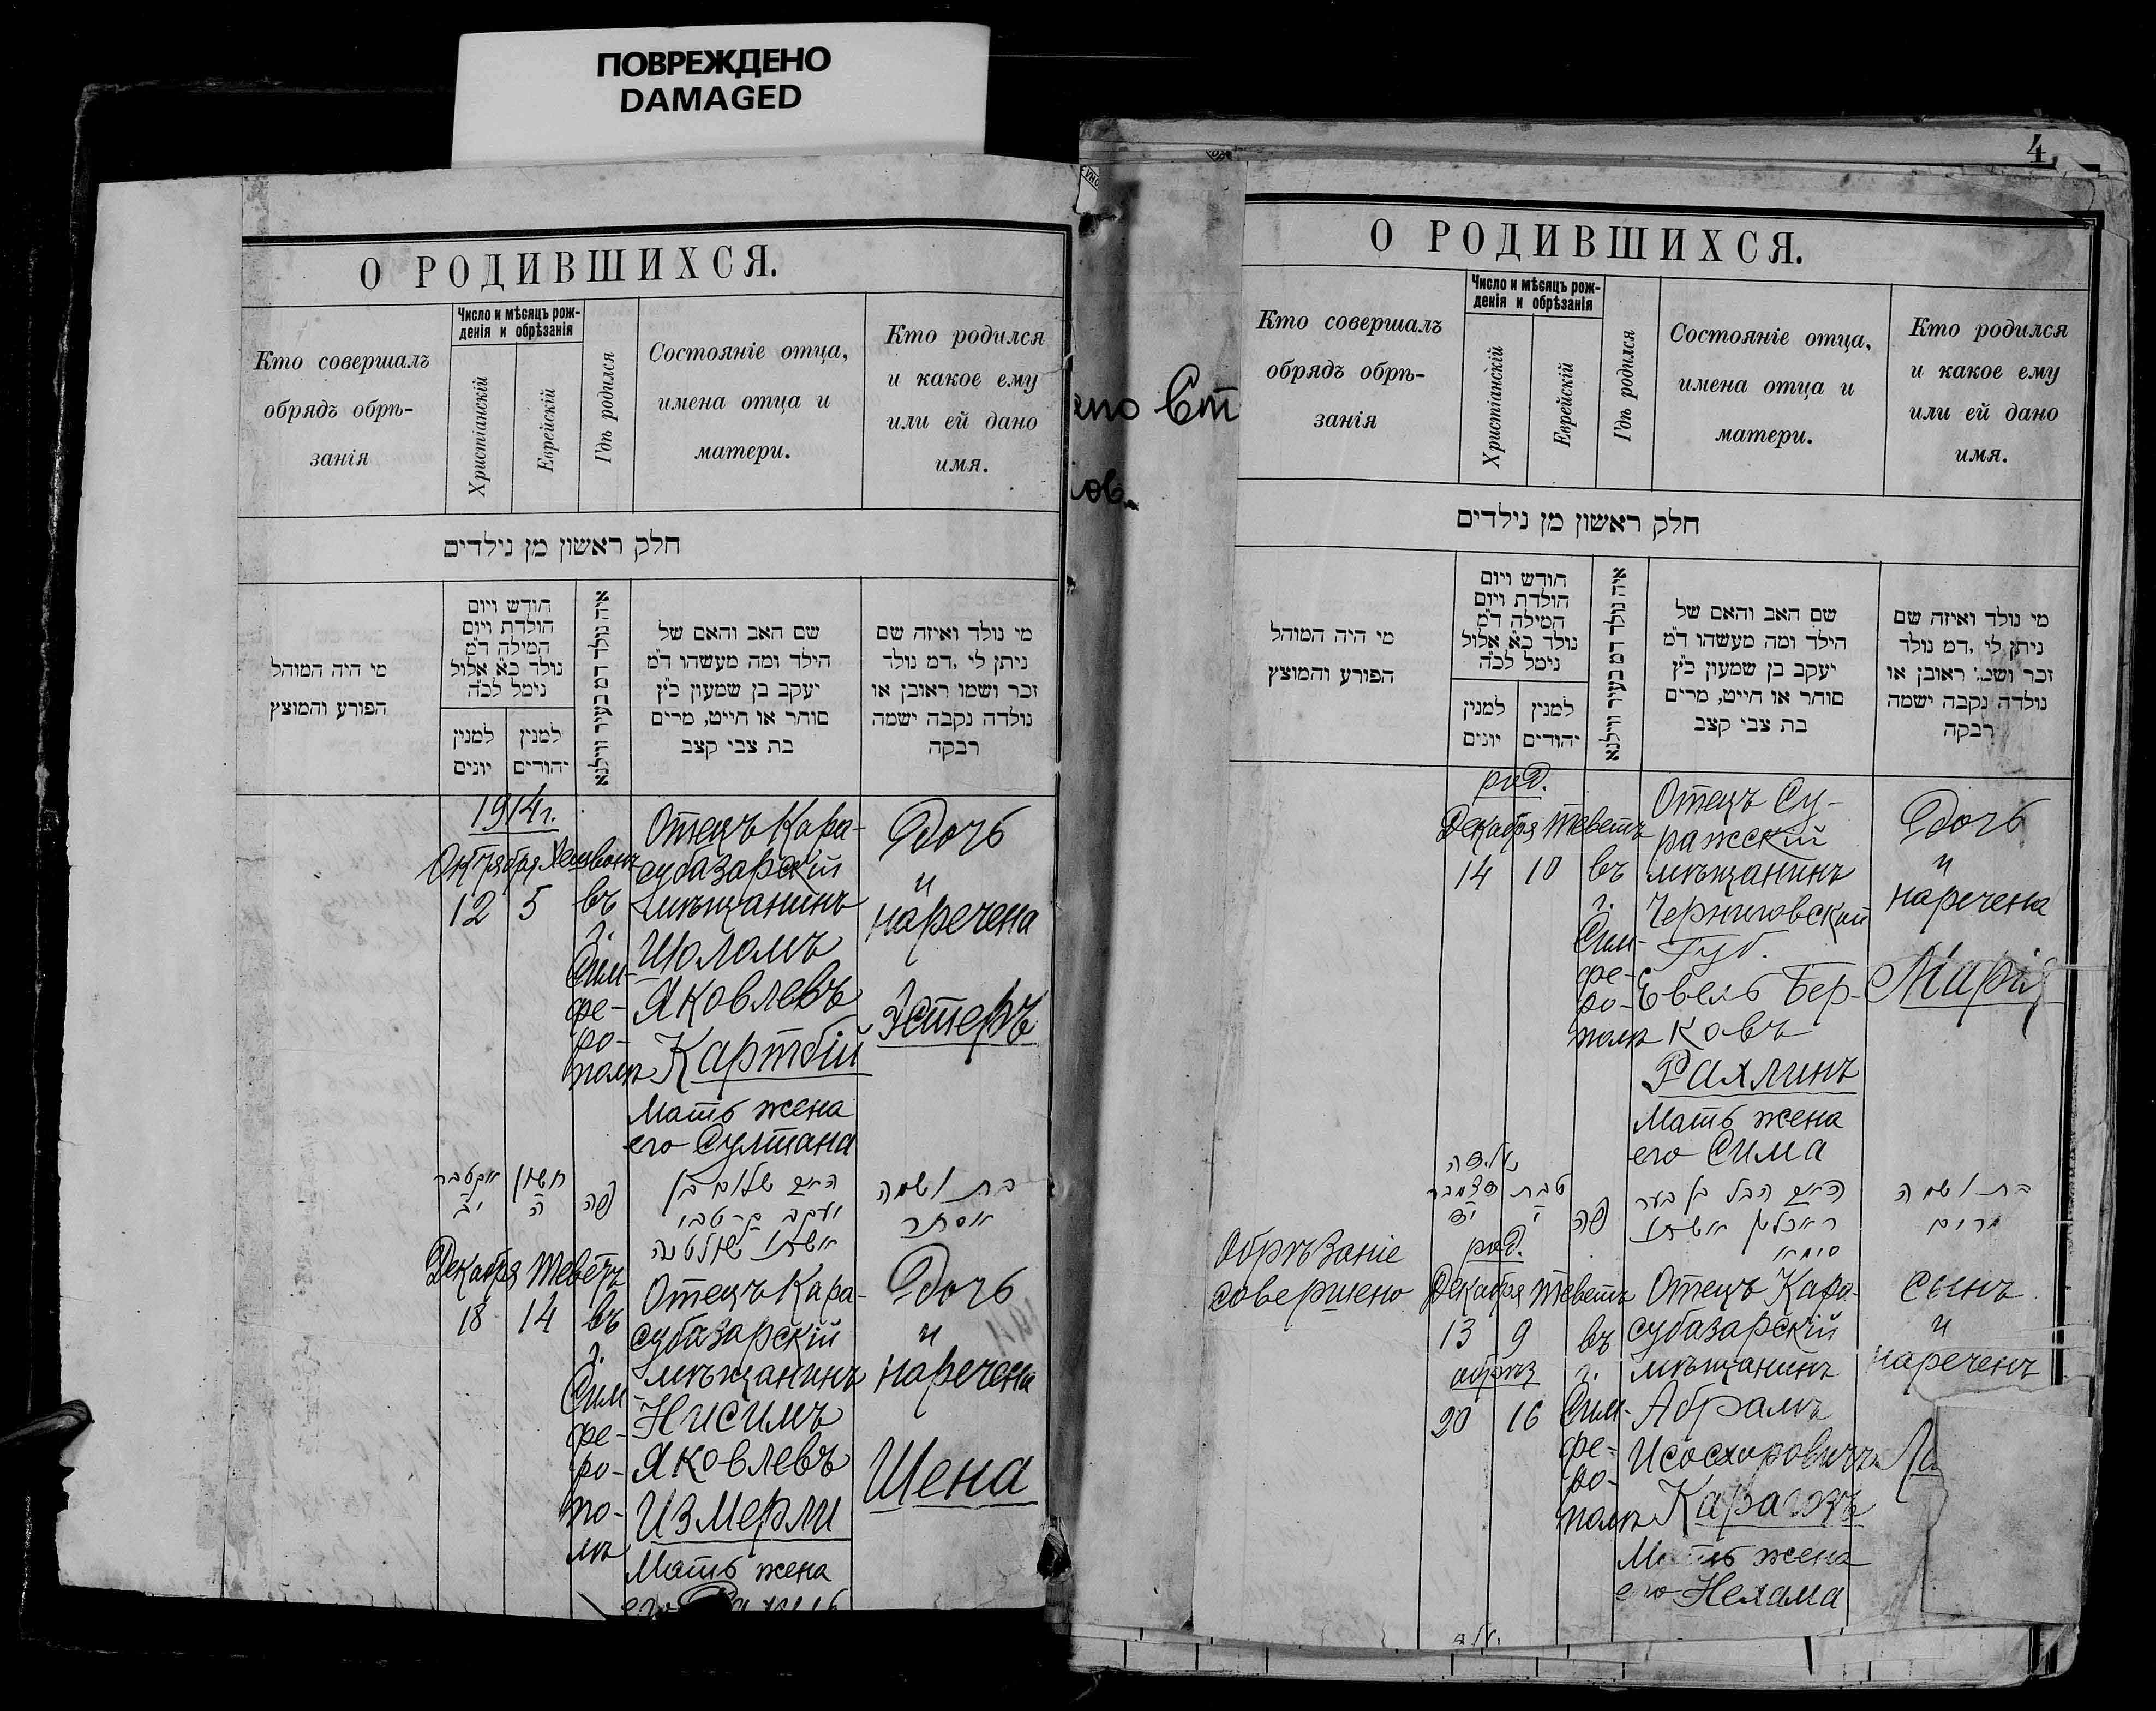 ПОВРЕЖДЕНО
DAMAGED
О РОДИВШИХСЯ.
Кто совершалъ
обрядъ обрѣ-
занія
Число и мѣсяцъ рож-
денія и обрѣзанія
Христіанскій
Еврейскій
Гдѣ родился
Состояніе отца,
имена отца и
матери.
Кто родился
и какое ему
или ей дано
имя.
חלק ראשון מן נילדים
מי היה המוהל
הפורע והמוצץ
חודש ויום
הולדת ויום
המילה ד"מ
נולד כ"א אלול
נימל לכ"ה
למנין
יונים
למנין
יהודים
איה נולד דמ בעיר ווילנא
שם האב והאם של
הילד ומה מעשהו ד"מ
יעקב בן שמעון כ"ץ
סוחר או חייט, מרים
בת צבי קצב
מי נולד ואיזה שם
ניתן לי ,דמ נולד
זכר ושמו ראובן או
נולדה נקבה ישמה
רבקה
1914 г.
Октября Хешвонъ
12 5
въ
г.
Сим-
фе-
ро-
полѣ
Отецъ Кара-
субазарскій
мѣщанинъ
Шоломъ
Яковлевъ
Картбій
Мать жена
его Султана
Дочь
и
наречена
Эстеръ
אקטבר
יב
חשון
ה
פה
האב שלום בן
יעקב קרטבי
אשתו שולטנה
בת ושמה
אסתר
Декабря Теветъ
18 14
въ
г.
Сим
фе-
ро-
по-
лѣ
Отецъ Кара-
субазарскій
мѣщанинъ
Нисимъ
Яковлевъ
Измерли
Мать жена
его Рахиль
Дочь
и
наречена
Шена
ено Ст
ов.
4
О РОДИВШИХСЯ.
Кто совершалъ
обрядъ обрѣ-
занія
Число и мѣсяцъ рож-
денія и обрѣзанія
Христіанскій
Еврейскій
Гдѣ родился
Состояніе отца,
имена отца и
матери.
Кто родился
и какое ему
или ей дано
имя.
חלק ראשון מן נילדים
מי היה המוהל
הפורע והמוצץ
חודש ויום
הולדת ויום
המילה ד"מ
נולד כ"א אלול
נימל לכ"ה
למנין
יונים
למנין
יהודים
איה נולד דמ בעיר ווילנא
שם האב והאם של
הילד ומה מעשהו ד"מ
יעקב בן שמעון כ"ץ
סוחר או חייט, מרים
בת צבי קצב
מי נולד ואיזה שם
ניתן לי ,דמ נולד
זכר ושמו ראובן או
נולדה נקבה ישמה
רבקה
род.
Декабря Теветъ
14 10
въ
г.
Сим-
фе-
ро-
полѣ
Отецъ Су-
ражскій
мѣщанинъ
Черниговской
Губ.
Евель Бер-
ковъ
Рахлинъ
Мать жена
его Сима
Дочь
и
наречена
Марія
דצמבר
יד
טבת
י
פה
האב הבל בן בער
ראכלין אשתו
סימא
בת ושמה
מרים
Обрѣзаніе
совершено
род.
Декабря Теветъ
13 9
обрѣз
20 16
въ
г.
Сим-
фе-
ро-
полѣ
Отецъ Кара-
субазарскій
мѣщанинъ
Абрамъ
Карагозъ
Мать жена
его Нехама
Сынъ
и
нареченъ